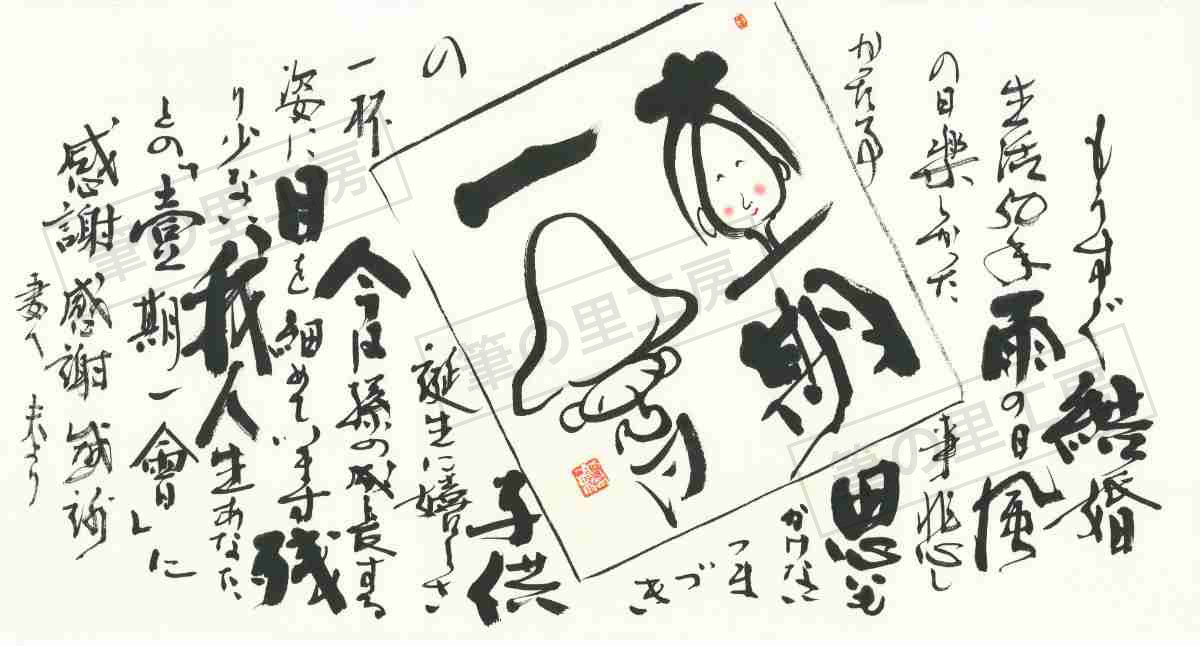 もうすぐ結婚
生活50年雨の日風
の日楽しかった事悲し
かった事思いも
かけない
つま
づ
き
子供
の誕生に嬉しさ
一杯今は孫の成長する
姿に目を細めています残
り少ない我人生あなた
との「壹期一會」に
感謝感謝感謝
妻へ
夫より
期
一
筆の里工房
筆の里工房
筆の里工房